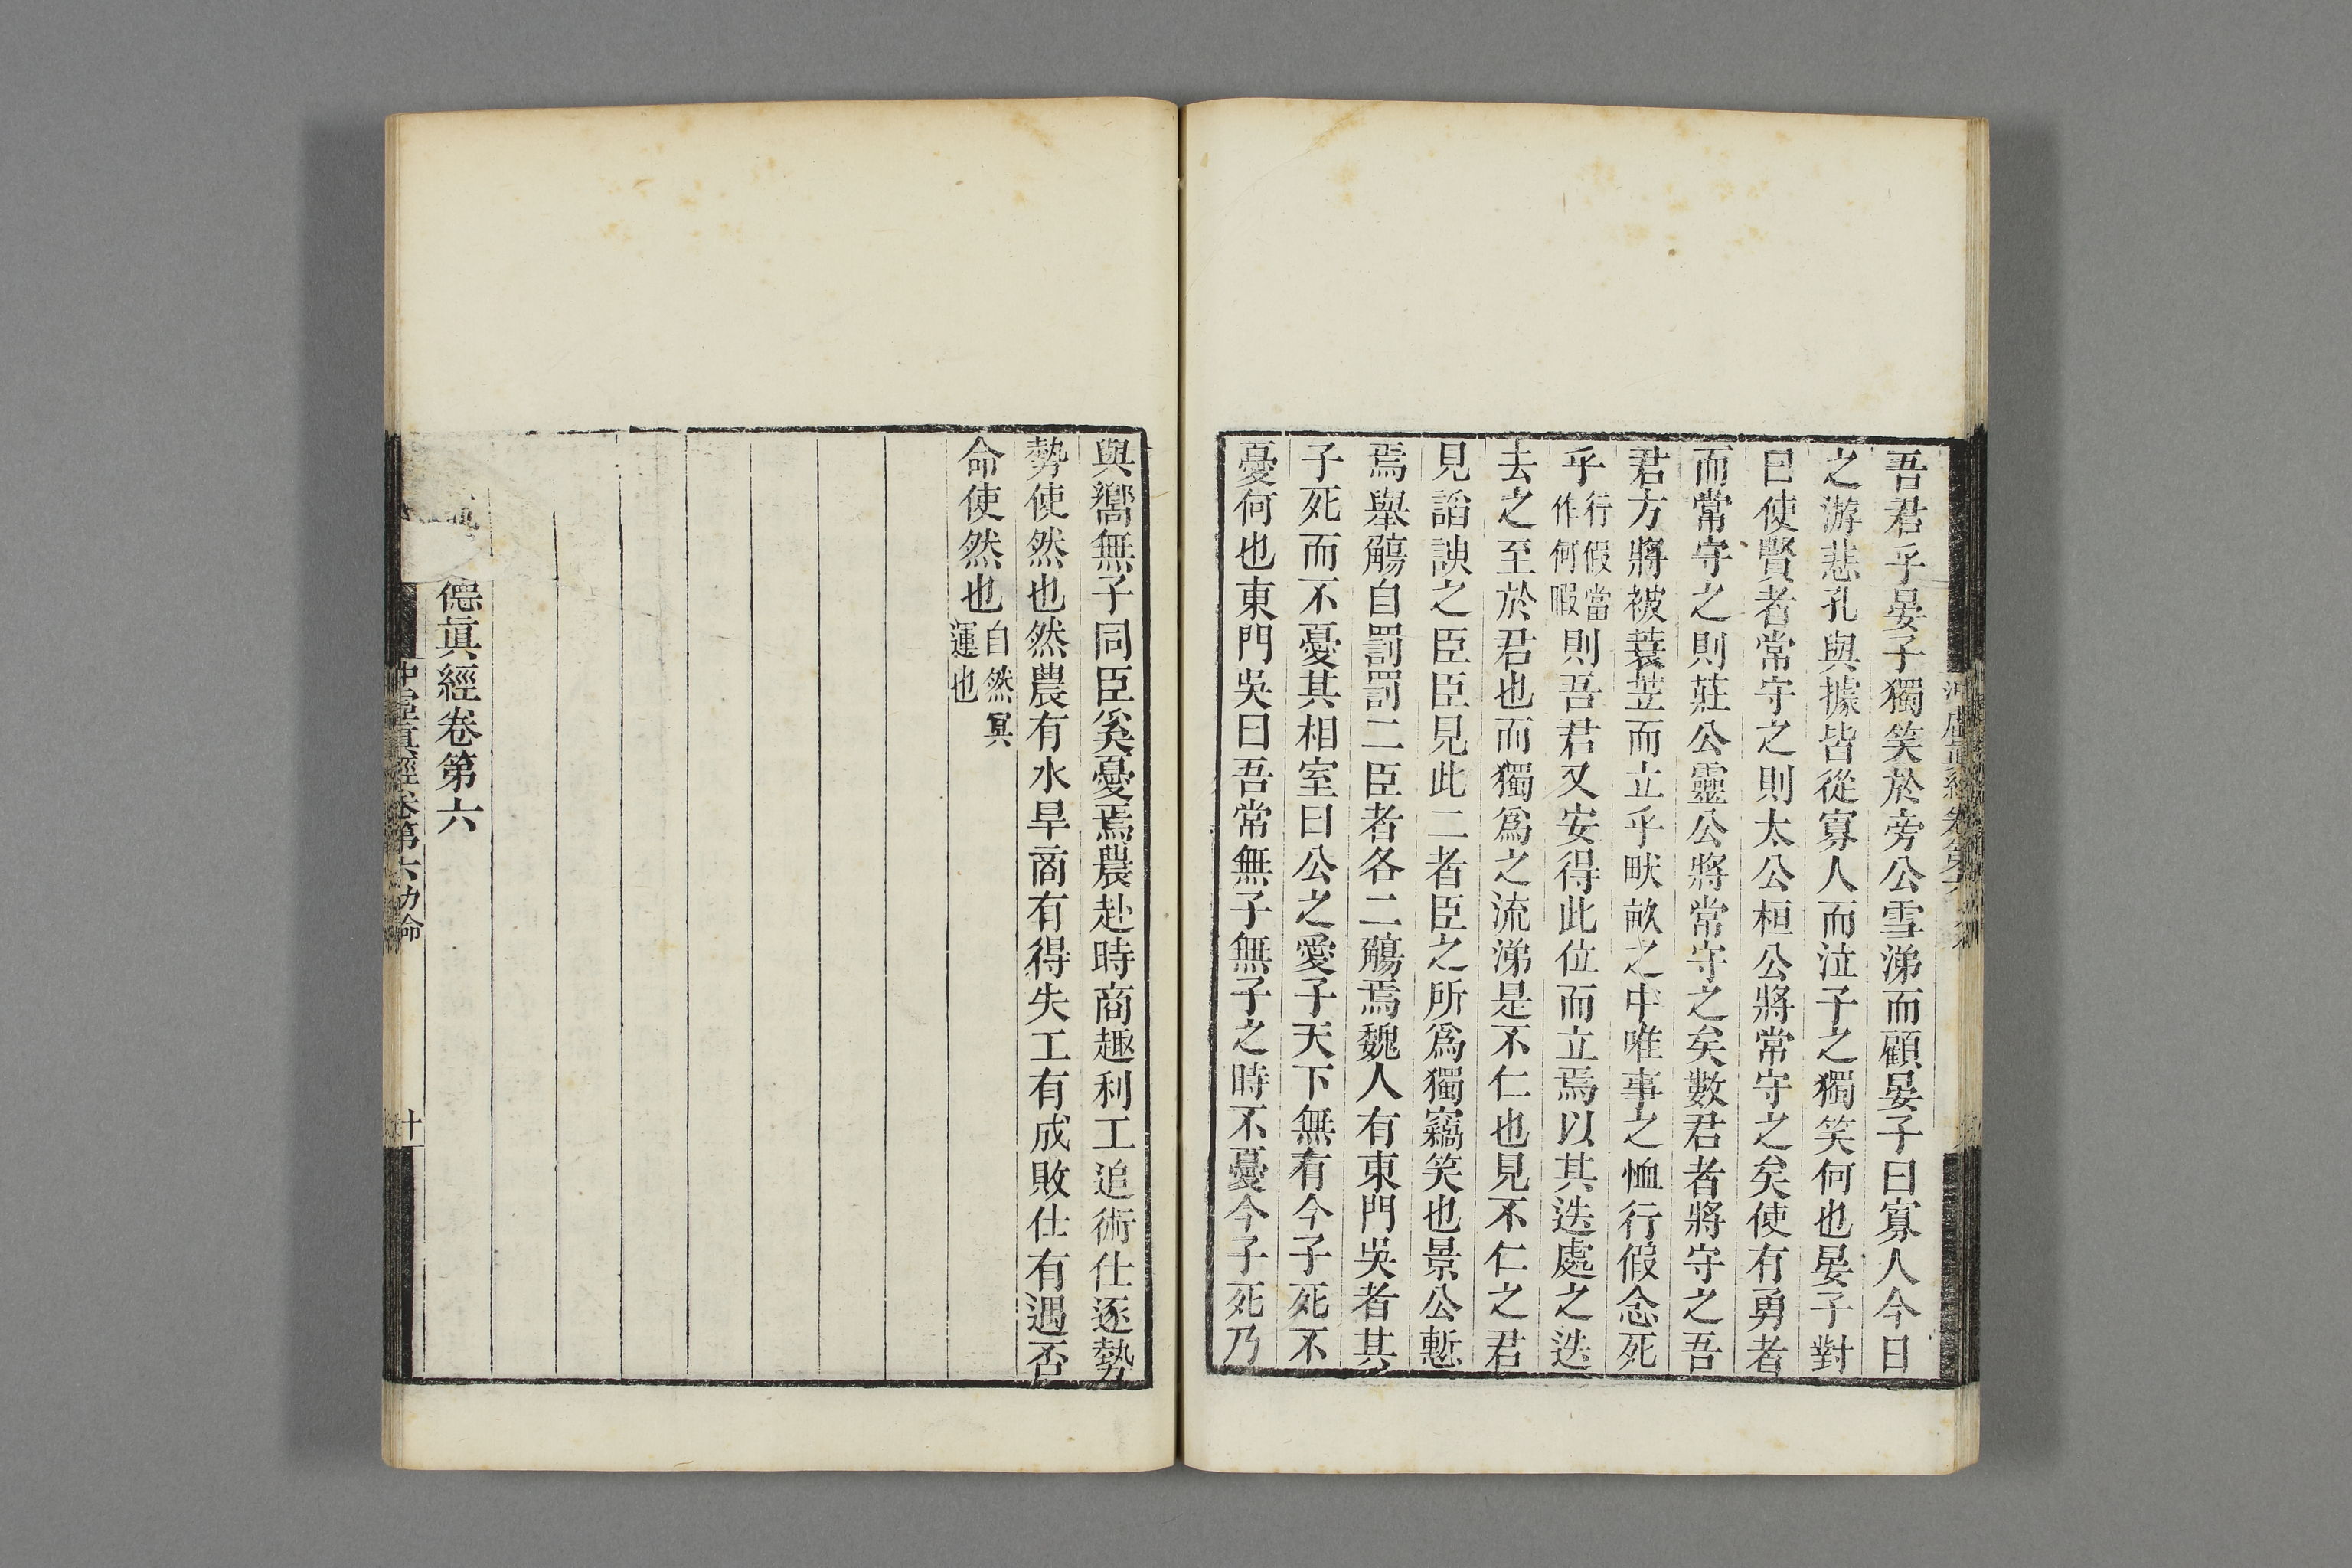 吾君乎晏子獨笑於旁公雪涕而顧晏子曰寡人今日
之游悲孔與據皆從寡人而泣子之獨笑何也晏子對
曰使賢者常守之則太公桓公將常守之矣使有勇者
而常守之則莊公靈公將常守之矣數君者將守之吾
君方將被蓑苙而立乎畎畝之中唯事之恤行假念死
乎行假當作何暇則吾君又安得此位而立焉以其迭處之迭
去之至於君也而獨爲之流涕是不仁也見不仁之君
見諂諛之臣臣見此二者臣之所爲獨竊笑也景公慙
焉舉觴自罰罰二臣者各二觴焉魏人有東門吳者其
子死而不憂其相室曰公之愛子天下無有今子死不
憂何也東門吳曰吾常無子無子之時不憂今子死乃
與嚮無子同臣奚憂焉農赴時商趣利工追術仕逐勢
勢使然也然農有水旱商有得失工有成敗仕有遇否
命使然也自然冥運也
德眞經卷第六
沖虛眞經卷第六力命
十